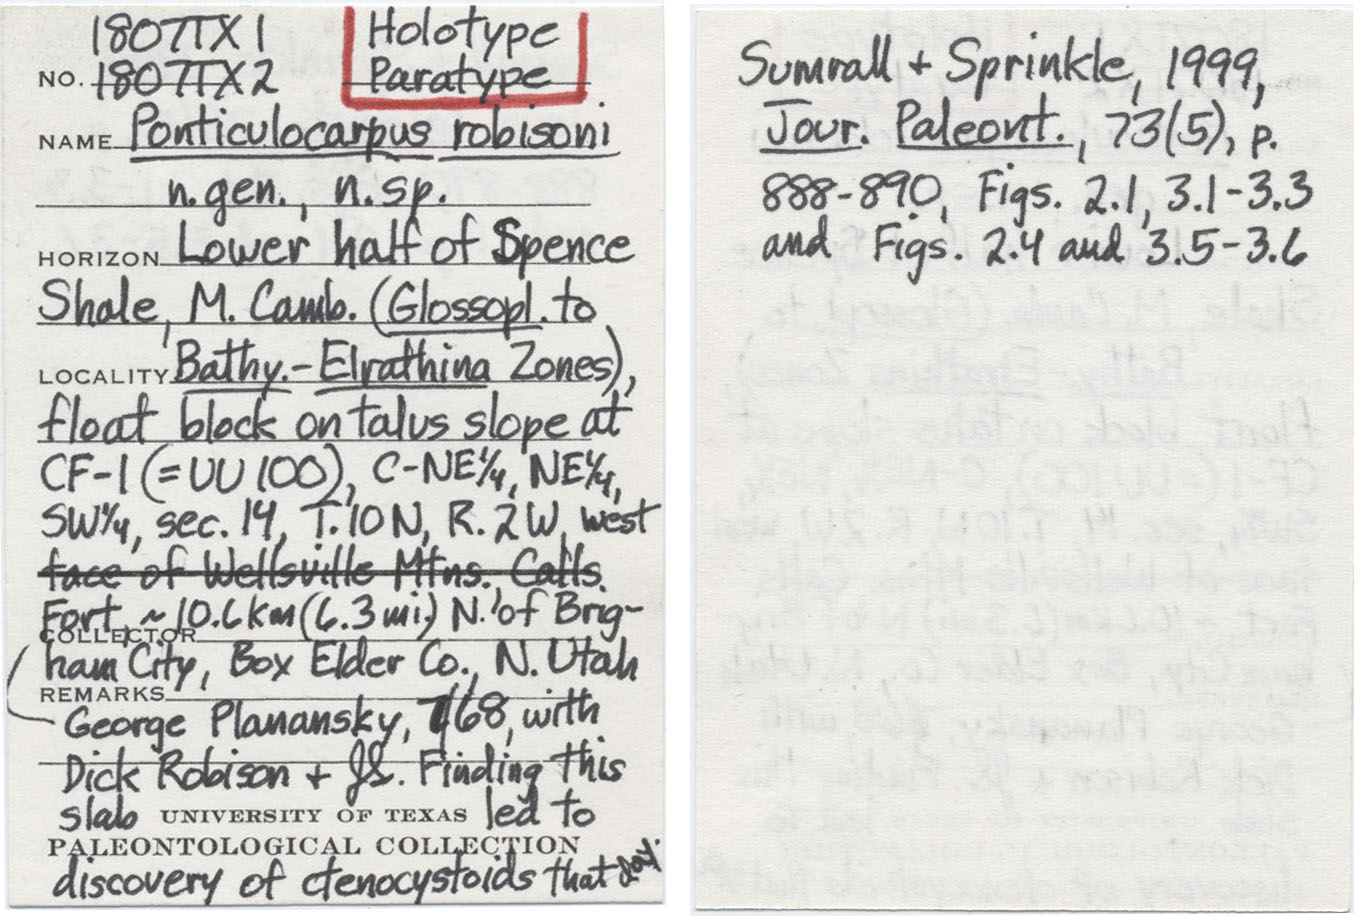 1807TX1 Holotype
NO. 1807TX2 Paratype
NAME Ponticulocarpus robisoni
n.gen., n.sp.
HORIZON Lower half of Spence
Shale, M. Camb. (Glossopl. to
LOCALITY Bathy.-Elrathina Zones),
float block on talus slope at
CF-1 (=UU 100), C-NE¼, NE¼,
SW¼, sec. 14, T.10N, R.2W, west
face of Wellsville Mtns. Calls
Fort, ~10.6km (6.3mi.) N. of Brig-
COLLECTOR
ham City, Box Elder Co., N. Utah
REMARKS
George Planansky, 7/68, with
Dick Robison + JS. Finding this
slab UNIVERSITY OF TEXAS led to
PALEONTOLOGICAL COLLECTION
discovery of ctenocystoids that day.
Sumrall + Sprinkle, 1999,
Jour. Paleont., 73(5), p.
888-890, Figs. 2.1, 3.1-3.3
and Figs. 2.4 and 3.5-3.6